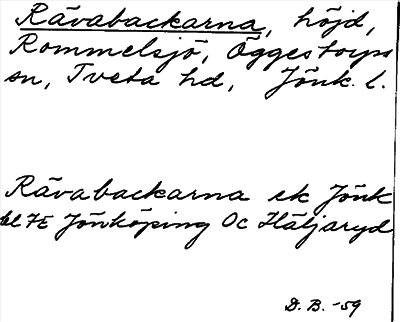 Rävabackarna, höjd,
Rommelsjö, Öggestorps
sn, Tveta hd, Jönk. l.
Rävabackarna ek Jönk
bl 7E Jönköping Oc Häljaryd
D. B. -59